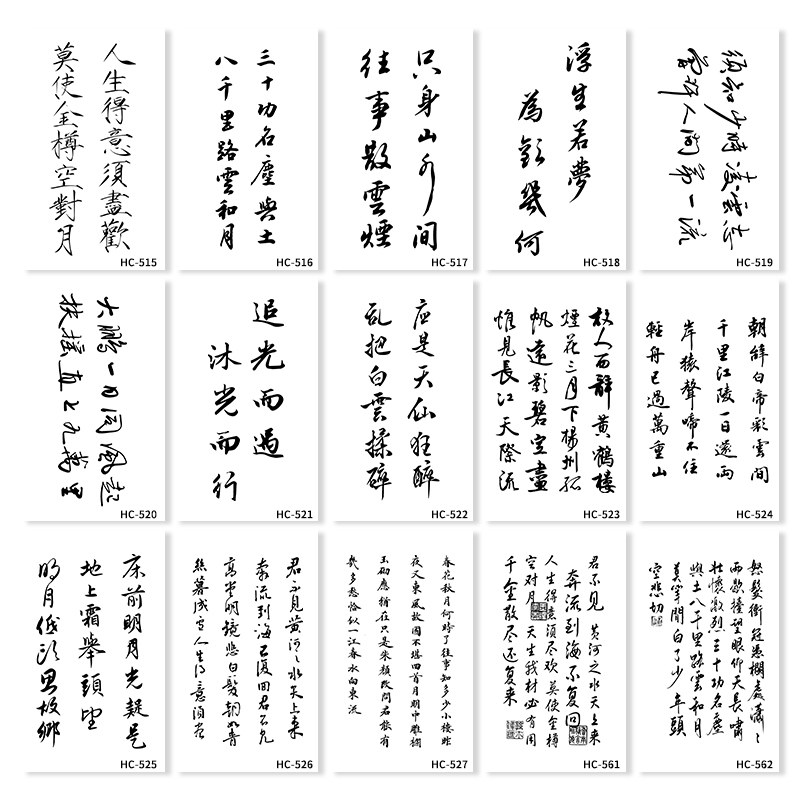 人生得意須盡歡
莫使金樽空對月
HC-515
三十功名塵與土
八千里路雲和月
HC-516
只身山外间
往事散雲煙
HC-517
浮生若夢
為歡幾何
HC-518
須知少時凌雲志
曾許人間第一流
HC-519
大鵬一日同風起
扶搖直上九萬里
HC-520
追光而遇
沐光而行
HC-521
应是天仙狂醉
乱把白雲揉碎
HC-522
故人西辭黃鶴樓
煙花三月下楊州孤
帆遠影碧空盡
惟見長江天際流
HC-523
朝辭白帝彩雲間
千里江陵一日還两
岸猿聲啼不住
輕舟已過萬重山
HC-524
床前明月光疑是
地上霜舉頭望
明月低头思故鄉
HC-525
君不見黃河之水天上来
奔流到海不復回君不見
高堂明鏡悲白髮朝如青
絲暮成雪人生得意須盡
HC-526
春花秋月何時了往事知多少小楼昨
夜又東風故國不堪回首月明中雕欄
玉砌應猶在只是朱顏改問君能有
幾多愁恰似一江春水向東流
HC-527
君不见 黄河之水天上来
奔流到海不复回
人生得意须尽欢莫使金樽
空对月 天生我材必有用
千金散尽还复来
HC-561
怒髮衝冠憑欄處瀟瀟
雨歇擡望眼仰天長嘯
壯懷激烈三十功名塵
與土八千里路雲和月
莫等閒白了少年頭
空悲切
HC-562